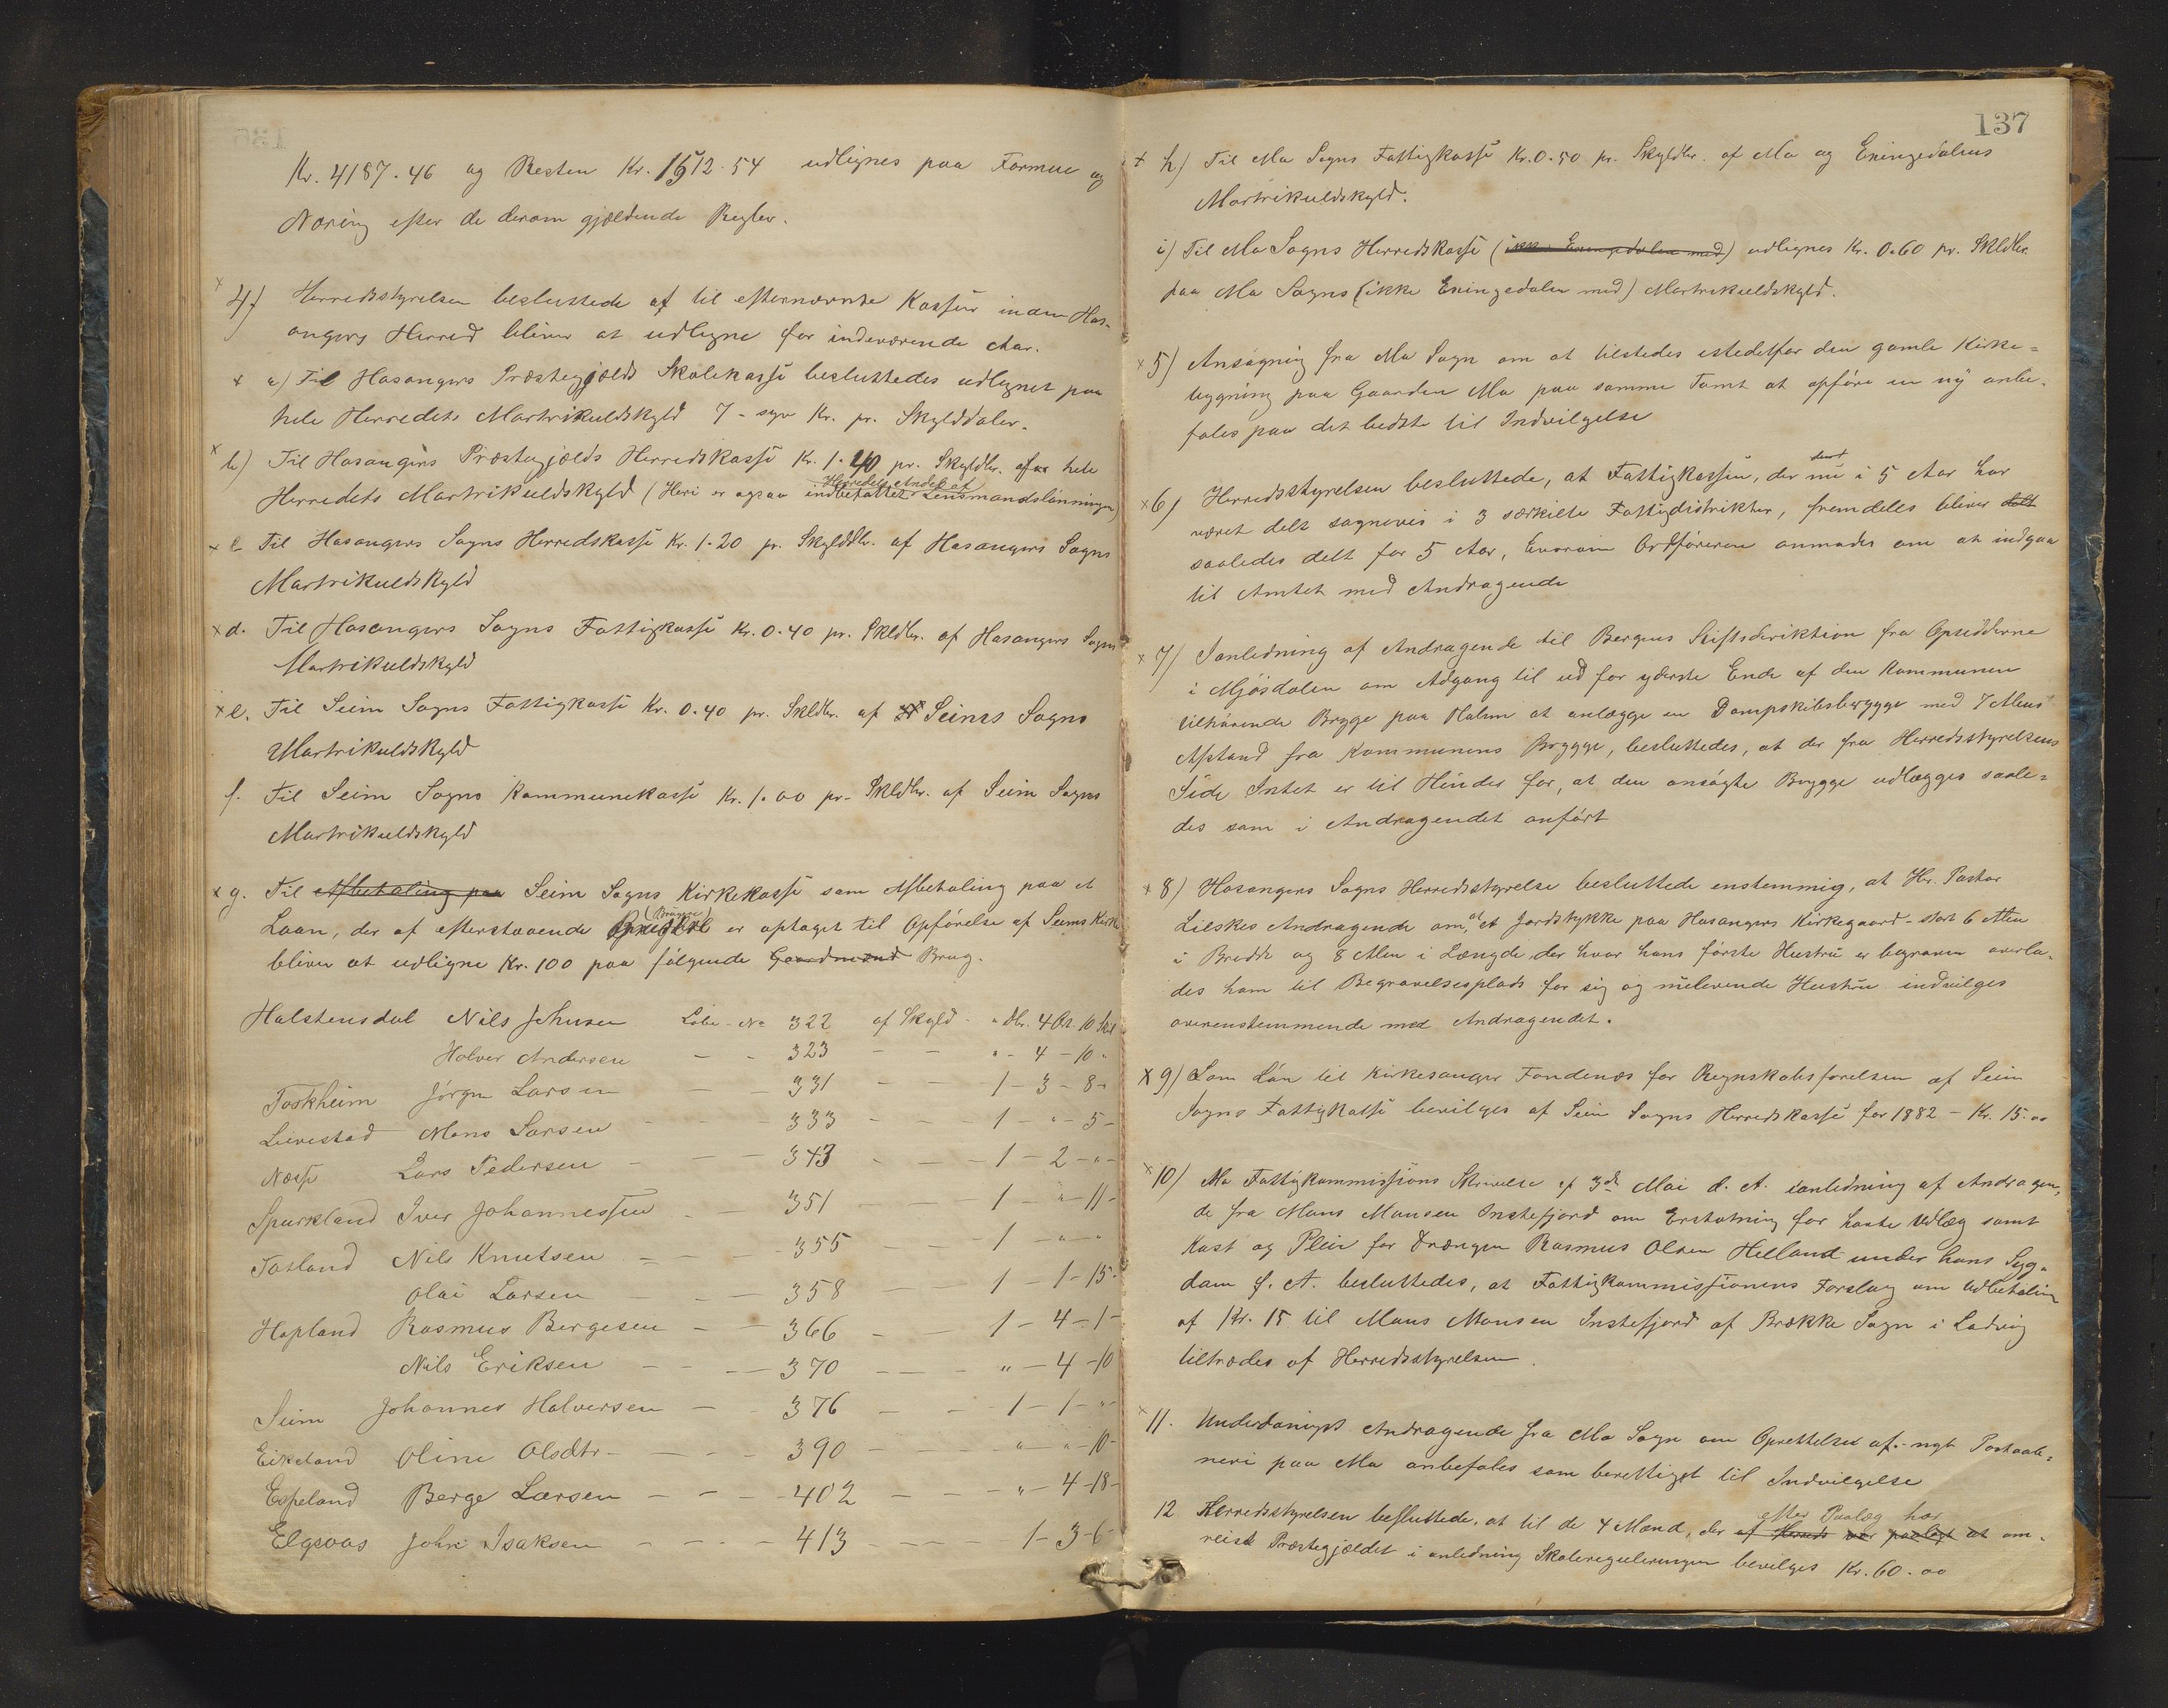 Kr. 4187.46 og Resten Kr. 1512.54 udlignes paa Formue og
Næring efter de derom gjældende Regler.
4) Herredsstyrelsen besluttede at til efternævnte Kasser inden Hos-
angers Herred bliver at udligne for indeværende Aar.
a) Til Hosangers Præstegjælds Skolekasse besluttedes udlignet paa
hele Herredets Martrikulskyld 7 - syv Kr. pr. Skylddaler.
b) Til Hosangers Præstegjælds Herredskasse Kr. 1.40 pr. Skyldlr. af hele
Herredets Andel af
Herredets Martrikuldskyld (Heri er ogsaa indbefattet Lensmandslønningen)
c Til Hosangers Sogns Herredskasse Kr. 1.20 pr. Skylddlr. af Hosangers Sogns
Martrikuldskyld
d. Til Hosangers Sogns Fattigkasse Kr. 0.40 pr. Skldlr. af Hosangers Sogns
Martrikuldskyld
e. Til Seim Sogns Fattigkasse Kr. 0.40 pr. Skldlr. af Seims Sogns
Martrikuldskyld
f. Til Seim Sogns Kommunekasse Kr. 1.00 pr. Skldlr. af Seim Sogns
Martrikuldskyld
g. Til Afbetaling paa Seim Sogns Kirkekasse som Afbetaling paa et
(Brugere)
Laan, der af efterstaaende er optaget til Opførelse af Seims Kirke
bliver at udligne Kr. 100 paa følgende Gaardmænd Brug.
Halstensdal Nils Johnsen Løbe-No 322 af Skyld " Dlr. 4 Ort 10 Skl
Holver Andersen - - 323 - - " - 4 - 10 "
Toskheim Jørgen Larsen 331 - - 1 - 3 - 8 -
Leirestad Mons Larsen - - 333 - - 1 - " - 5 -
Næsse Lars Pedersen - - - 343 - - 1 - 2 - " -
Spurkland Iver Johannessen - - 351 - - 1 - " - 11 -
Totland Nils Knutsen - - - 355 - - 1 - " - "
Olai Larsen - - - 358 - - 1 - 1 - 15 -
Hopland Rasmus Bergesen - - 366 - - 1 - 4 - 1 -
Nils Eriksen - - - 370 - - - " - 4 - 10
Seim Johannes Halversen - - 376 - - 1 - 1 - " -
Eikeland Oline Olsdtr - - - - 390 - - " - " - 10 -
Espeland Berge Larsen - - - - 402 - - - " - 4 - 18 -
Elgsaas John Isaksen - - - - 413 - - - - 1 - 3 - 6 -
137
h) Til Mo Sogns Fattigkasse Kr. 0.50 pr. Skyldlr. af Mo og Eningedalens
Martrikuldskyld.
i) Til Mo Sogns Herredskasse (ikke Eningedalen med) udlignes Kr. 0.60 pr. Skldlr.
paa Mo Sogns (ikke Eningedalen med) Martrikuldskyld.
5) Ansøgning fra Mo Sogn om at tilstedes istedetfor den gamle Kirke=
bygning paa Gaarden Mo paa samme Tomt at opføre en ny anbe-
fales paa det bedste til Indvilgelse
6) Herredsstyrelsen besluttede, at Fattigkassen, der nu i 5 Aar har
været delt sognevis i 3 særkilte Fattigdistrikter, fremdeles bliver delt
saaledes delt for 5 Aar, hvorom Ordføreren anmodes om at indgaa
til Amtet med Andragende
7) Ianledning af Andragende til Bergens Stiftsdiriktion fra Opsidderne
i Mjøsdalen om Adgang til ud for yderste Ende af den Kommunen
tilhørende Brygge paa Holmen at anlægge en Dampskibsbrygge med 7 Alens
Afstand fra Kommunens Brygge, besluttedes, at der fra Herredsstyrelsens
Side Intet er til Hinder for, at den ansøgte Brygge udlægges saale=
des som i Andragendet anført
8) Hosangers Sogns Herredsstyrelse besluttede enstemmig, at Hr. Pastor
Lieskes Andragende om, at et Jordstykke paa Hosangers Kirkegaard - stort 6 Alen
i Bredde og 8 Alen i Længde, der hvor hans første Hustru er begraven overla-
des ham til Begravelsesplads for sig og nulevende Hustru indvilges
overenstemmende med Andragendet.
9) Som Løn til Kirkesanger Fondenæs for Regnskabsførelsen af Seim
Sogns Fattigkasse bevilges af Seim Sogns Herredskasse for 1882 - Kr. 15.00
10) Mo Fattigkommissions Skrivelse af 3de Mai d. A. ianledning af Andragen-
de fra Mons Monsen Instefjord om Erstatning for havte Udlæg samt
Kost og Pleie for Drængen Rasmus Olsen Helland under hans Syg-
dom f. A. besluttedes, at Fattigkommissionens Forslag om Udbetaling
af Kr. 15 til Mons Monsen Instefjord af Brække Sogn i Ladvig
tiltrædes af Herredsstyrelsen.
11. Underdanigst Andragende fra Mo Sogn om Oprettelse af nyt Postaab=
neri paa Mo anbefales som berettiget til Indvilgelse
efter Paalæg har
12 Herredsstyrelsen besluttede, at til de 4 Mænd, der af Herreds var paalagt at om-
reist Præstegjældet i anledning Skolereguleringen bevilges Kr. 60.00